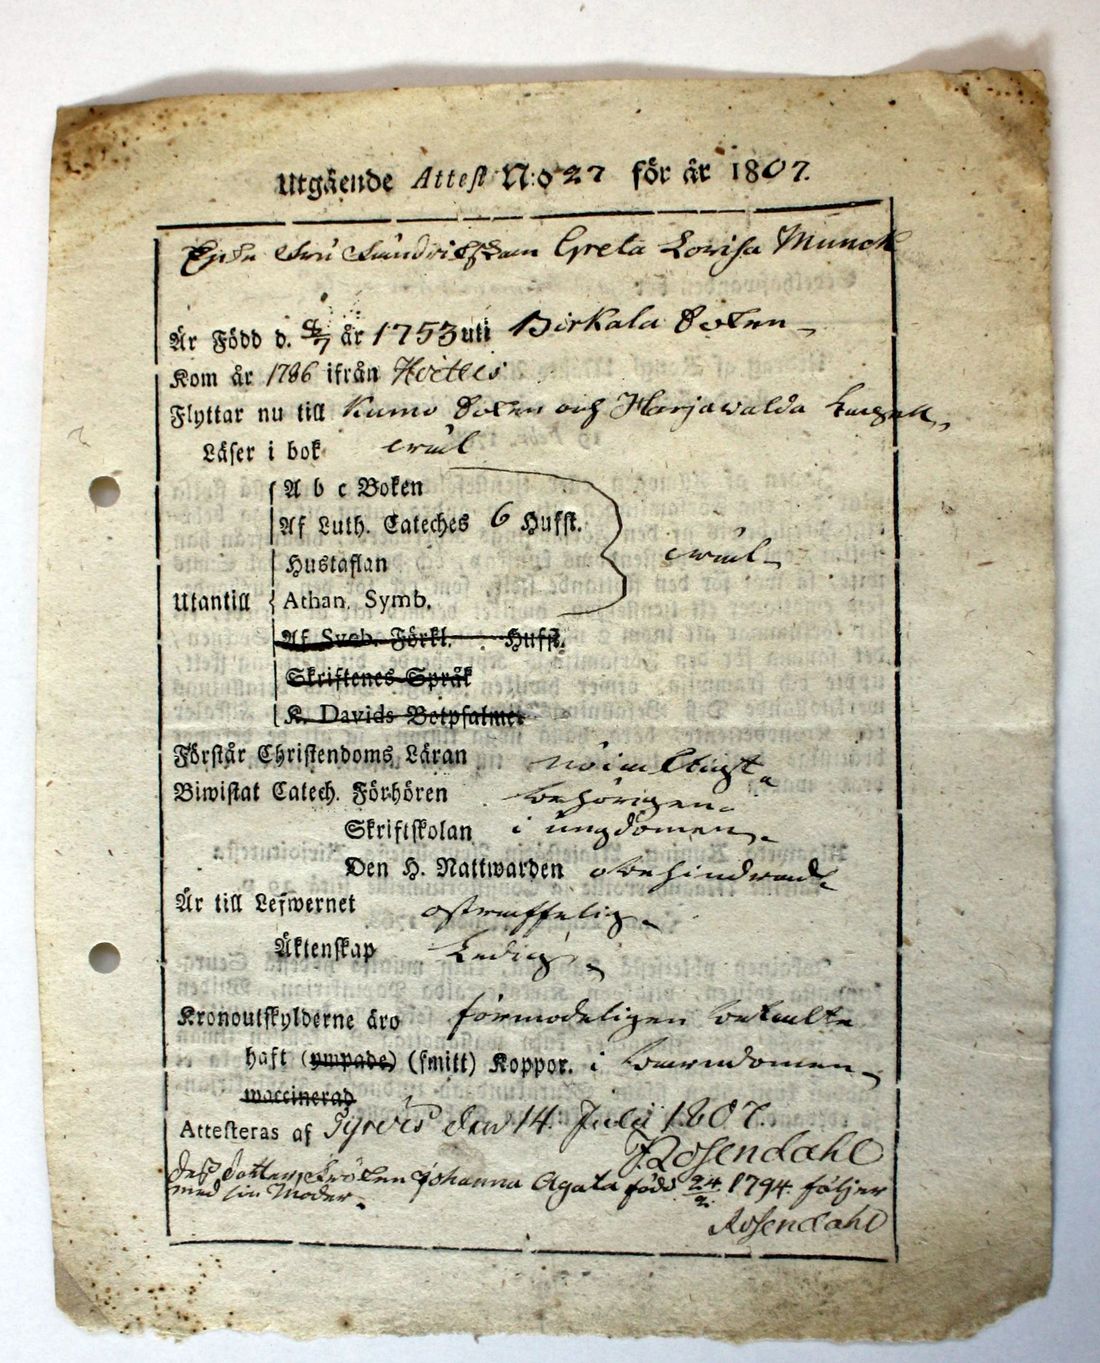 Utgående Attest N:o 27 för år 1807.
Fru Greta Lovisa Munck
Är Född d. 8/7 år 1753 uti Birkala Soken
Kom år 1786 ifrån
Flyttar nu till Kumo Soken och Harjawalda
Läser i bok wäl
A b c Boken
Af Luth. Cateches 6 Hufst.
Hustaflan wäl
Utantill Athan. Symb.
Af Sveb. Förkl. Hufst.
Skriftenes Språk
K. Davids Botpsalmer
Förstår Christendoms Läran
Biwistat Catech. Förhören behörigen
Skriftskolan i ungdomen
Den H. Nattwarden obehindrad
Är till Lefwernet ostraffelig
Äktenskap Ledig
Kronoutskylderne äro förmodeligen betalte
haft (ympade) (smitt) Koppor. i barndomen
waccinerad
Attesteras af Tyrvis den 14. Julii 1807.
J. Rosendahl
Dess dotter, Fröken Johanna Agata född 24/2 1794. följer
med sin Moder.
Rosendahl